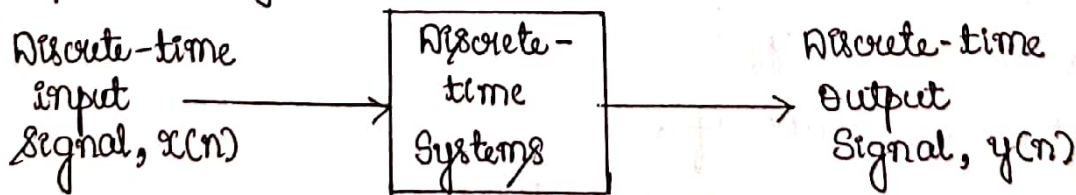 Discrete-time
input
Signal, x(n)
Discrete-
time
Systems
Discrete-time
output
Signal, y(n)